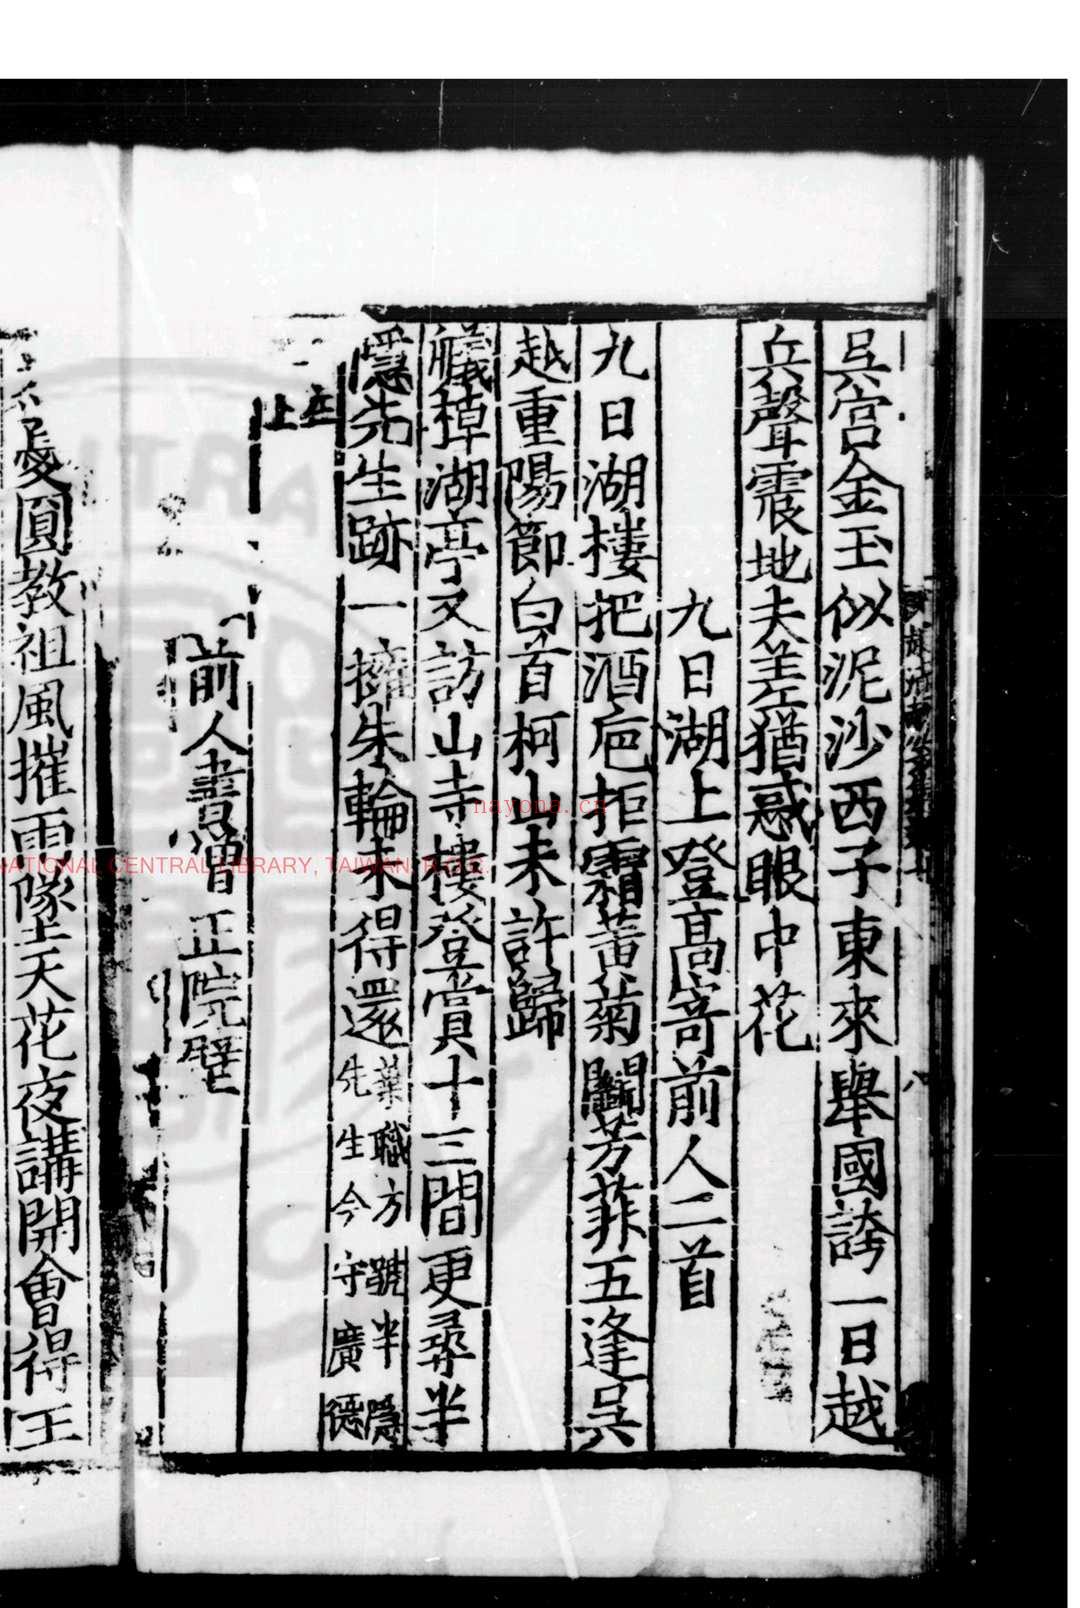 吳宮金玉似泥沙西子東來舉國誇一日越
兵聲震地夫差猶惑眼中花
九日湖上登高寄前人二首
九日湖樓把酒巵拒霜黃菊鬭芳菲五逢吳
越重陽節白首柯山未許歸
艤棹湖亭又訪山寺樓登賞十三間更尋半
隱先生跡一擁朱輪未得還
葉職方號半隱
先生今守廣德
在
上
前人書僧正院壁
愛圓教祖風摧雨墜天花夜講開會得王
nayona.cn
NATIONAL CENTRAL LIBRARY, TAIWAN, R.O.C.